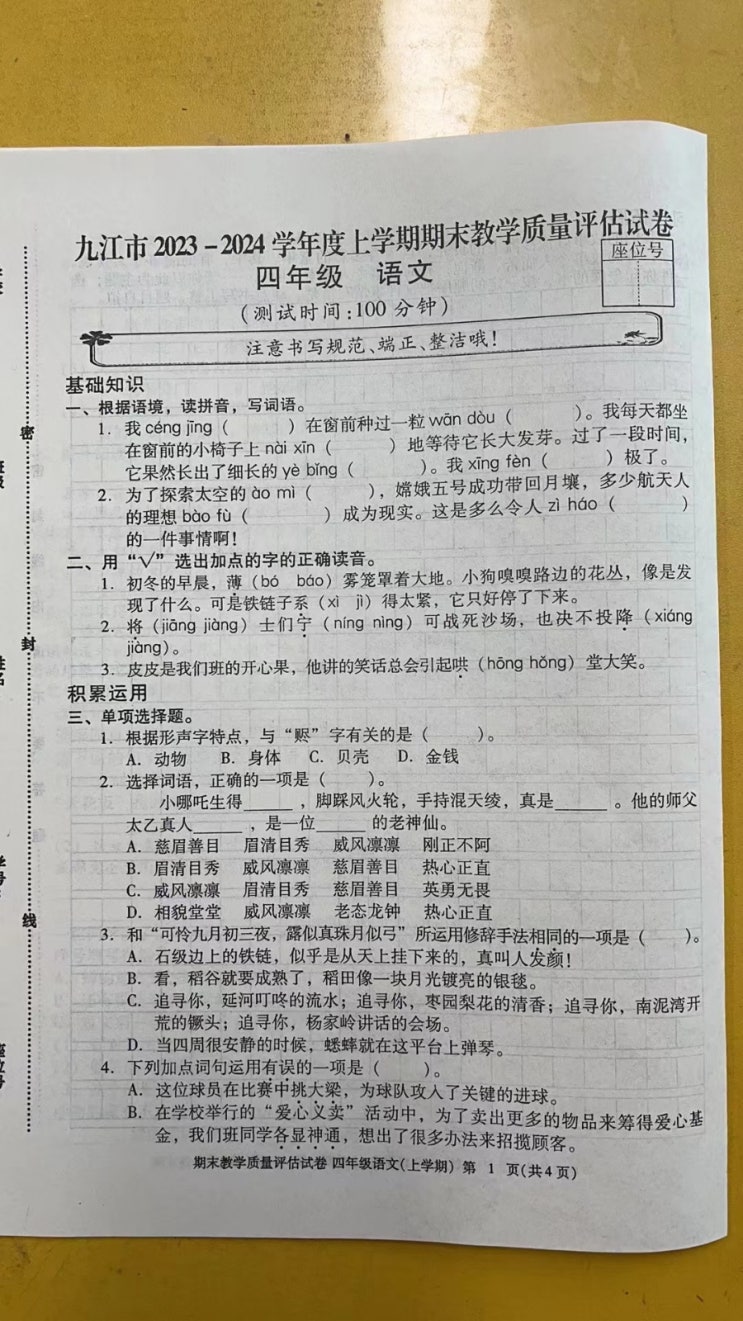 九江市2023-2024学年度上学期期末教学质量评估试卷
座位号
四年级 语文
(测试时间:100分钟)
注意书写规范、端正、整洁哦!
基础知识
一、根据语境,读拼音,写词语。
1. 我 céng jīng( )在窗前种过一粒 wān dòu( )。我每天都坐
在窗前的小椅子上 nài xīn( )地等待它长大发芽。过了一段时间,
它果然长出了细长的 yè bǐng( )。我 xīng fèn( )极了。
2. 为了探索太空的 ào mì( ),嫦娥五号成功带回月壤,多少航天人
的理想 bào fù( )成为现实。这是多么令人 zì háo( )
的一件事情啊!
二、用“√”选出加点的字的正确读音。
1. 初冬的早晨,薄(bó báo)雾笼罩着大地。小狗嗅嗅路边的花丛,像是发
现了什么。可是铁链子系(xì jì)得太紧,它只好停了下来。
2. 将(jiāng jiàng)士们宁(níng nìng)可战死沙场,也决不投降(xiáng
jiàng)。
3. 皮皮是我们班的开心果,他讲的笑话总会引起哄(hōng hǒng)堂大笑。
积累运用
三、单项选择题。
1. 根据形声字特点,与“赆”字有关的是( )。
A. 动物 B. 身体 C. 贝壳 D. 金钱
2. 选择词语,正确的一项是( )。
小哪吒生得______,脚踩风火轮,手持混天绫,真是______。他的师父
太乙真人______,是一位______的老神仙。
A. 慈眉善目 眉清目秀 威风凛凛 刚正不阿
B. 眉清目秀 威风凛凛 慈眉善目 热心正直
C. 威风凛凛 眉清目秀 慈眉善目 英勇无畏
D. 相貌堂堂 威风凛凛 老态龙钟 热心正直
3. 和“可怜九月初三夜,露似真珠月似弓”所运用修辞手法相同的一项是( )。
A. 石级边上的铁链,似乎是从天上挂下来的,真叫人发颤!
B. 看,稻谷就要成熟了,稻田像一块月光镀亮的银毯。
C. 追寻你,延河叮咚的流水;追寻你,枣园梨花的清香;追寻你,南泥湾开
荒的镢头;追寻你,杨家岭讲话的会场。
D. 当四周很安静的时候,蟋蟀就在这平台上弹琴。
4. 下列加点词句运用有误的一项是( )。
A. 这位球员在比赛中挑大梁,为球队攻入了关键的进球。
B. 在学校举行的“爱心义卖”活动中,为了卖出更多的物品来筹得爱心基
金,我们班同学各显神通,想出了很多办法来招揽顾客。
期末教学质量评估试卷 四年级语文(上学期) 第 1 页(共4页)
密
封
线